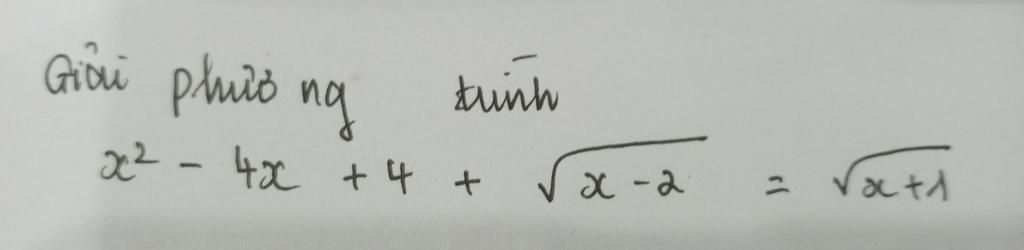 Giải phương trình
x² - 4x + 4 + √(x - 2) = √(x + 1)